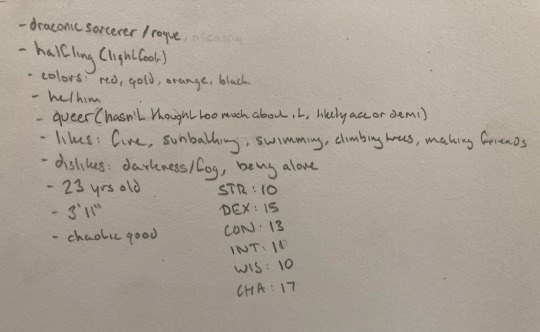 - draconic sorcerer/rogue
- halfling (lightfoot)
- colors: red, gold, orange, black
- he/him
- queer (hasn't thought too much about it, likely ace or demi)
- likes: fire, sunbathing, swimming, climbing trees, making friends
- dislikes: darkness/fog, being alone
- 23 yrs old
- 3'11"
- chaotic good
STR: 10
DEX: 15
CON: 13
INT: 11
WIS: 10
CHA: 17